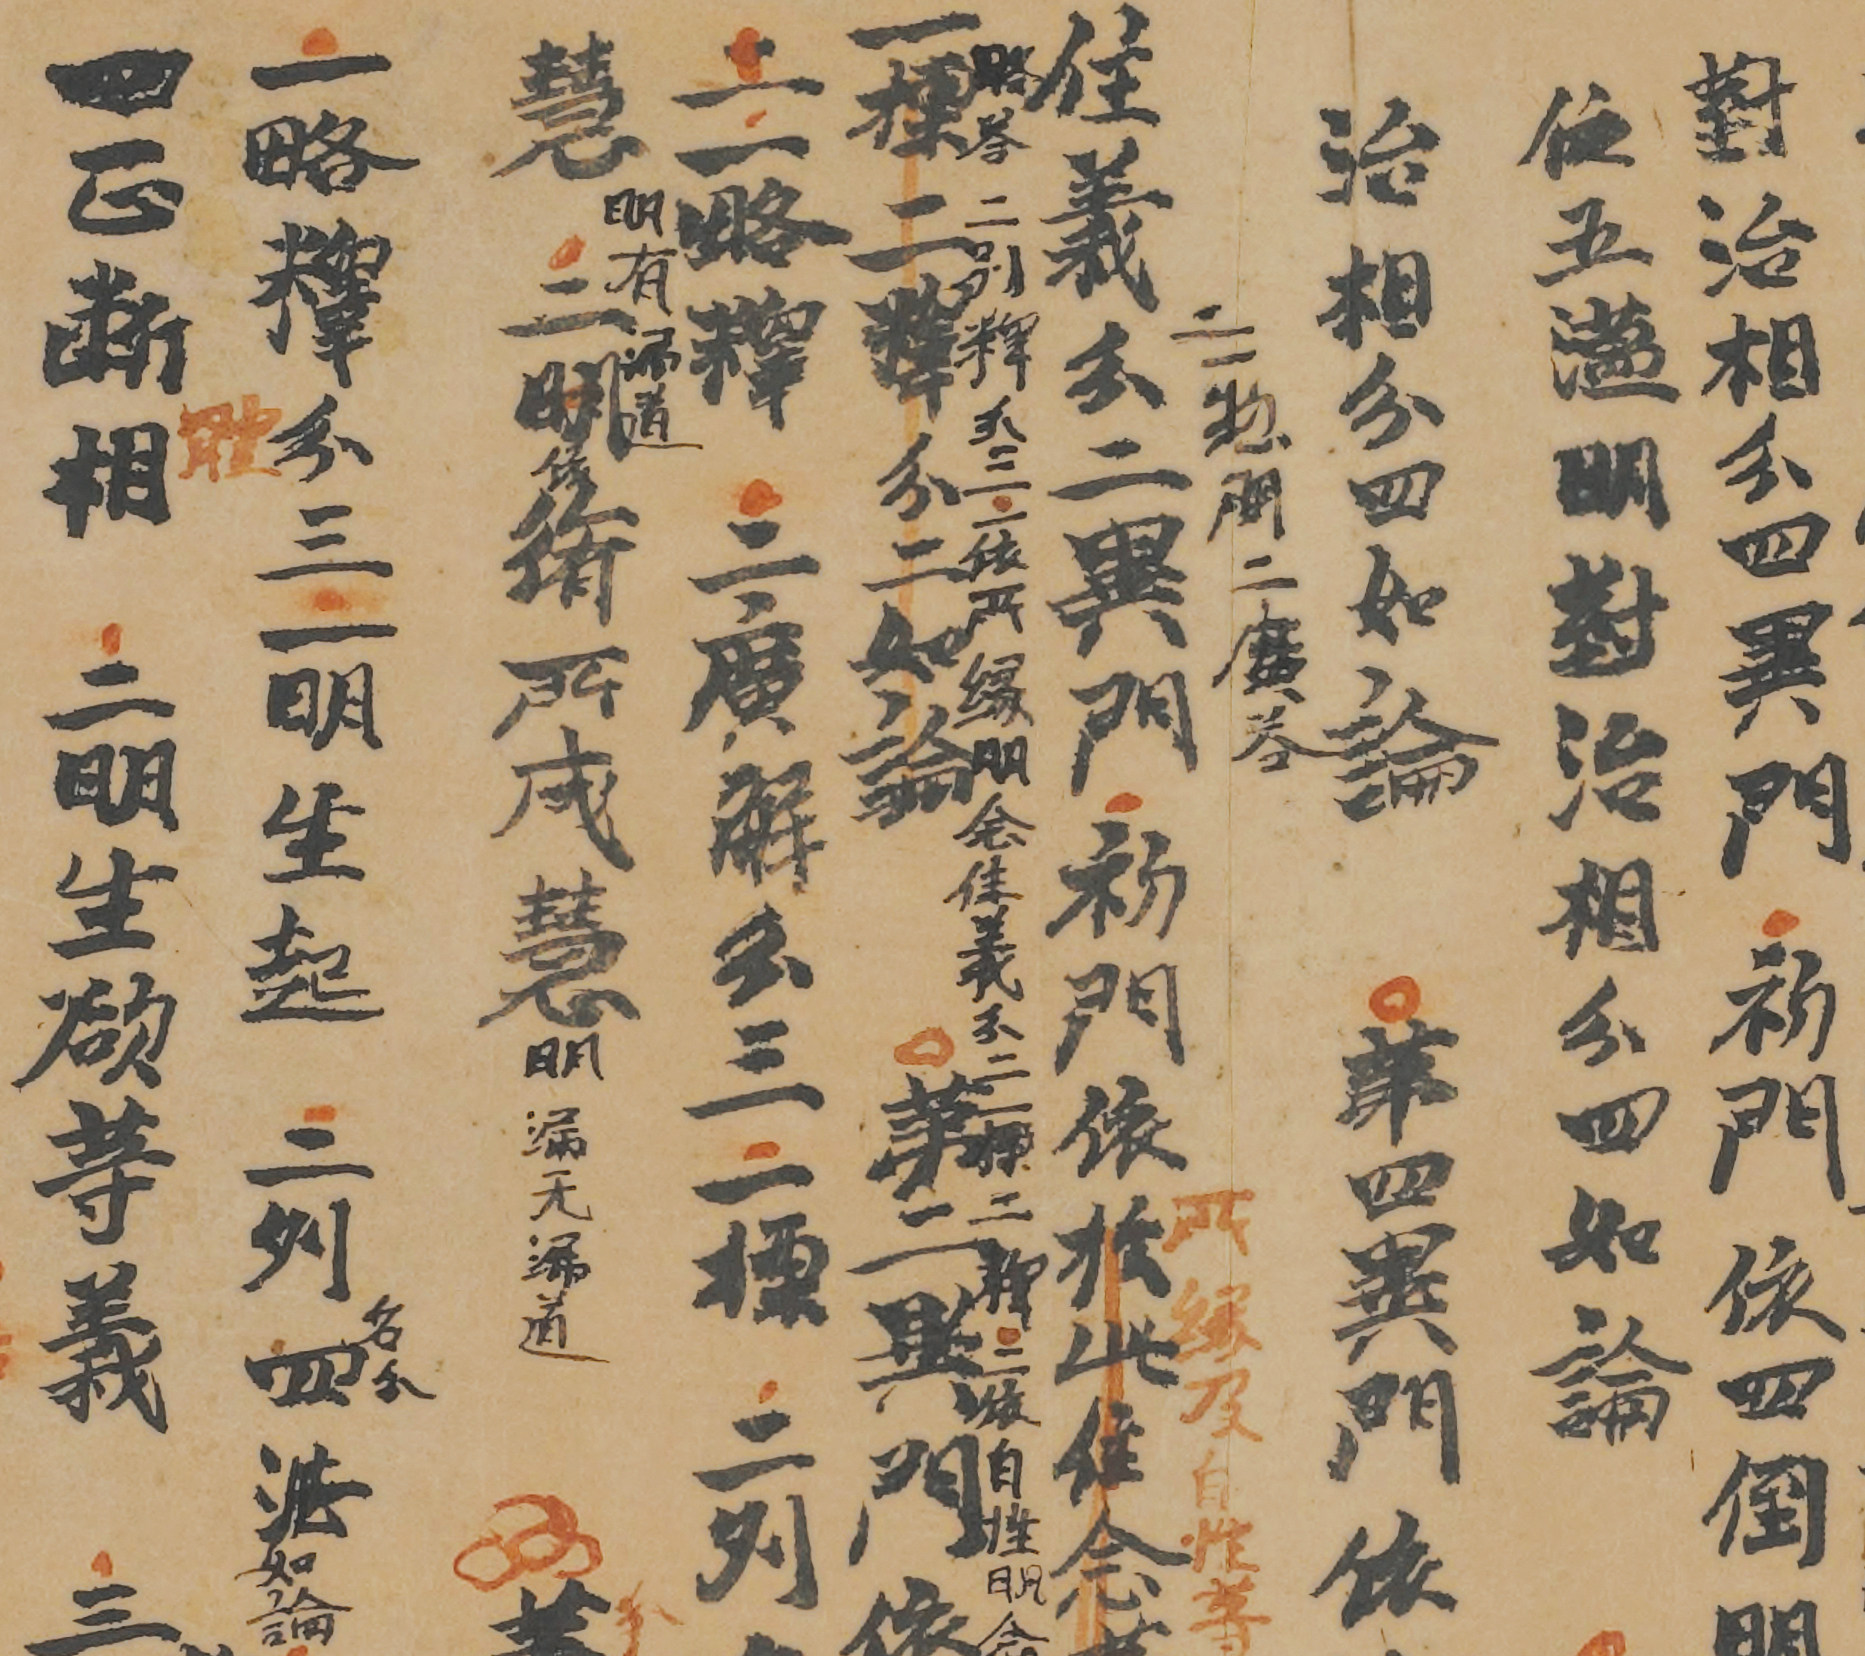 對治相分四異門 初門依四倒明
位五蘊明對治相分四如論
治相分四如論 第四異門依
二一惣問二廣答
所緣及自性等
住義分二異門 初門依於此住念
略答 二別釋分三一依所緣明念住義分二一標二釋二依自性明念
一標二釋分二如論 第二異門依
二一略釋 二廣解分三一標 二列
明有漏道
慧 二明修所成慧明漏无漏道
一略釋分三一明生起 二列四法如論
名分
四正斷相 二明生欲等義 三